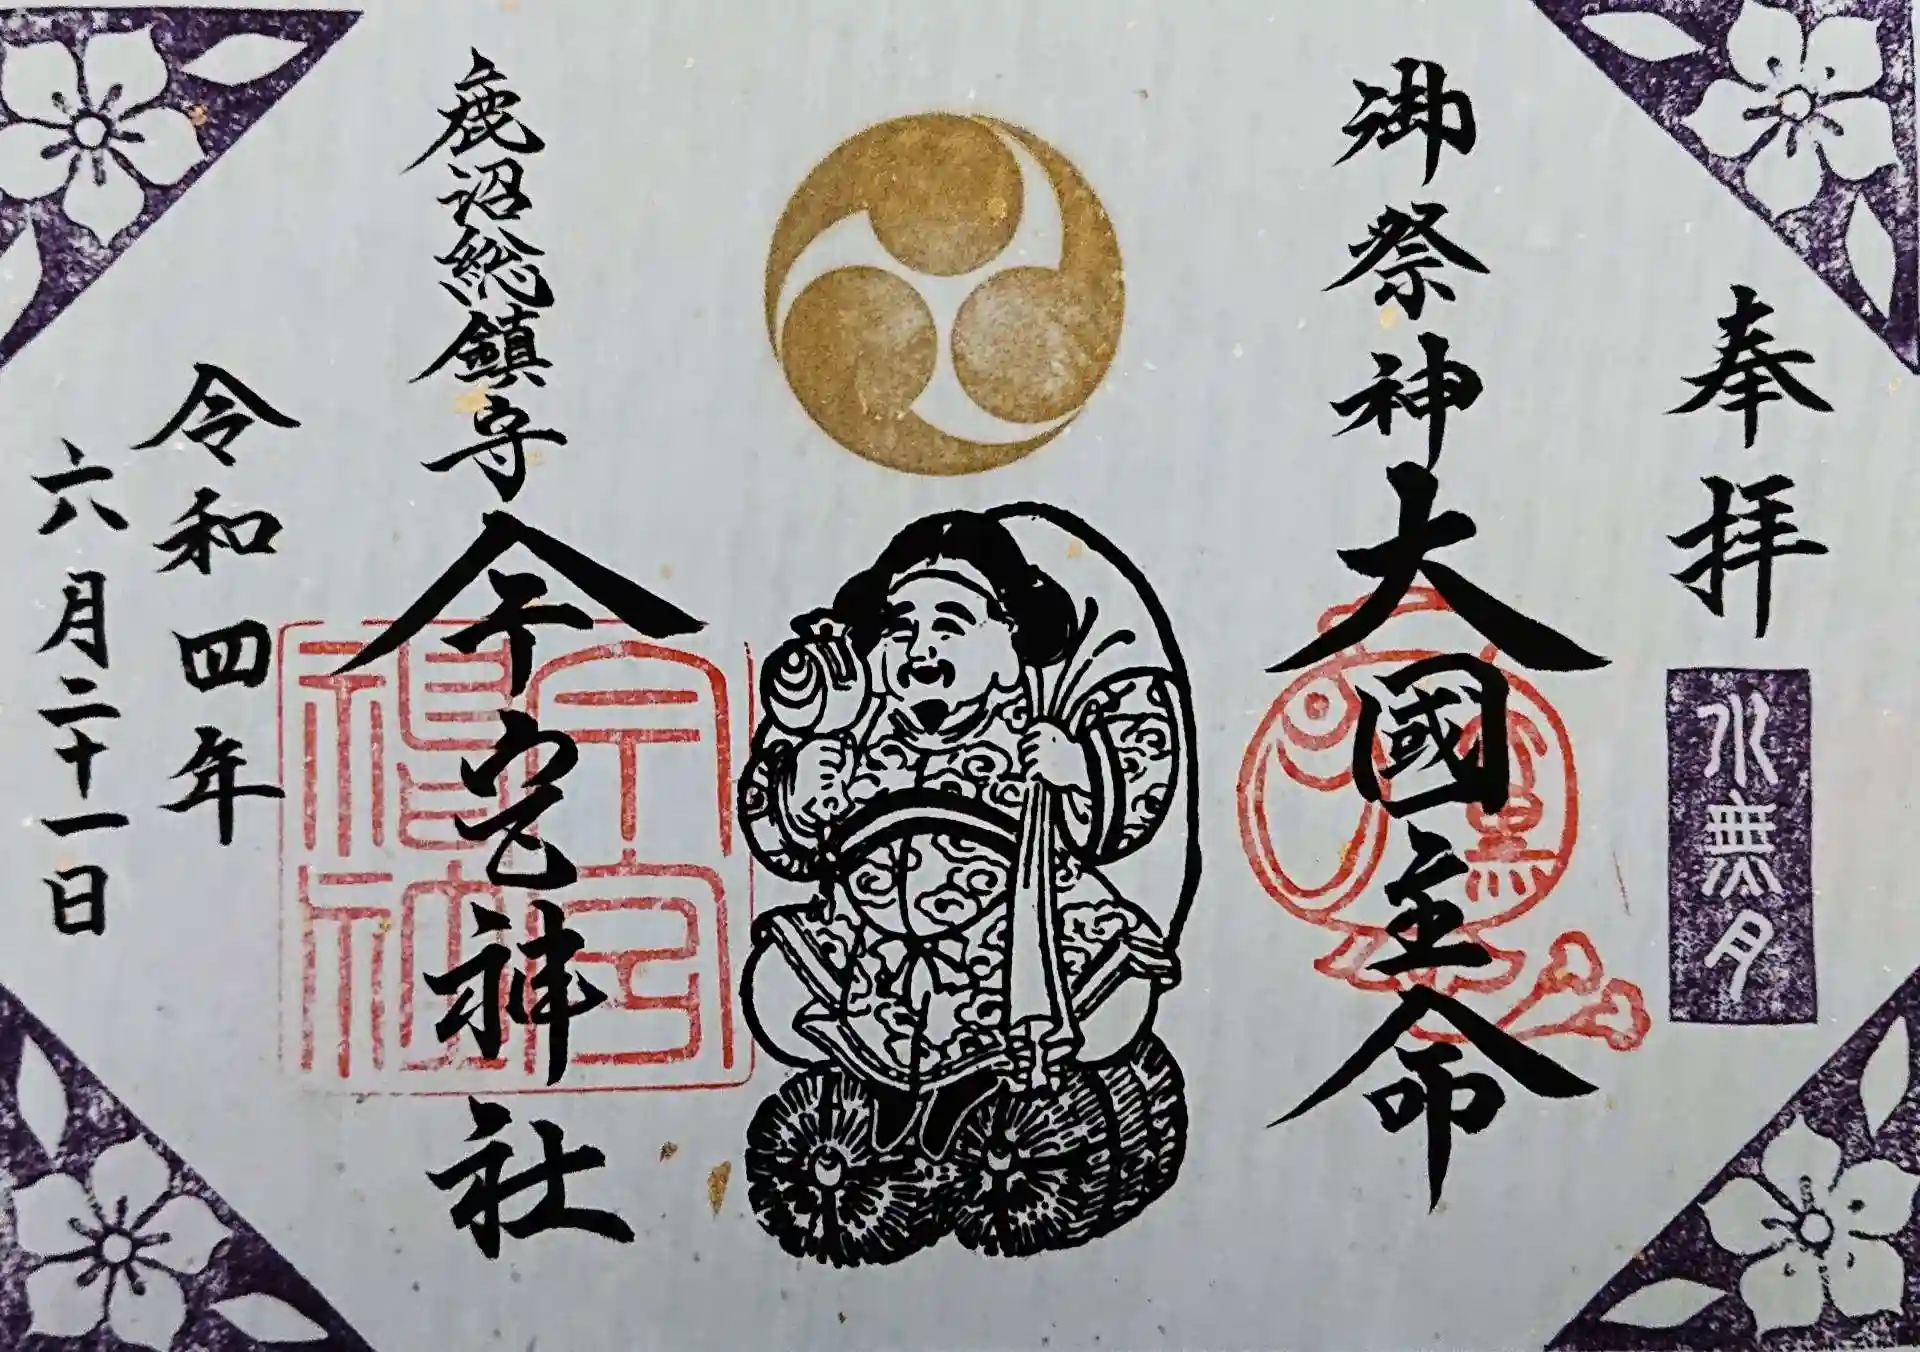 奉拝
水無月
御祭神大國主命
鹿沼総鎮守
今宮神社
令和四年
六月二十一日